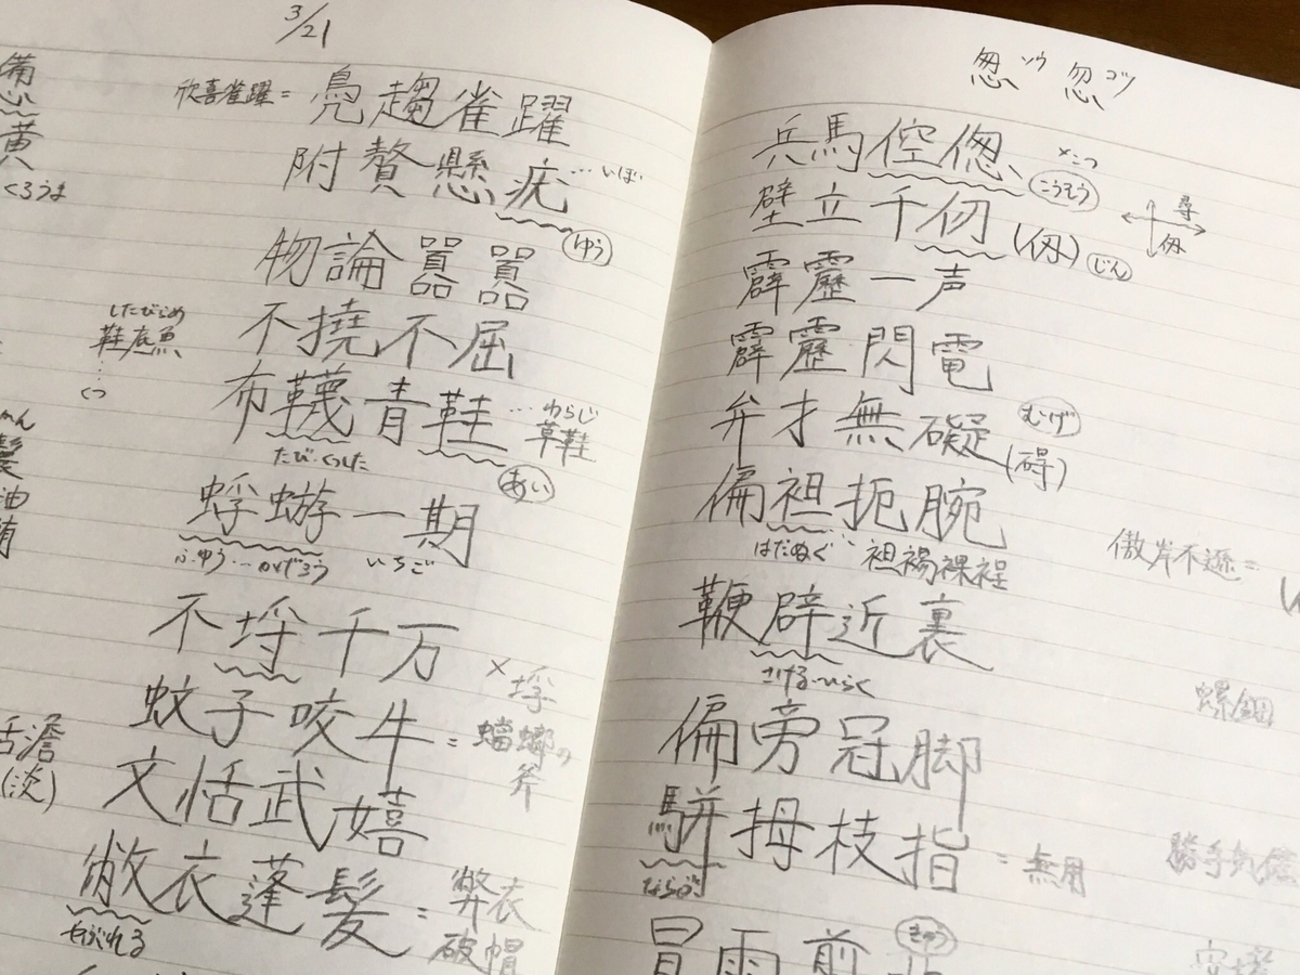 3/21
欣喜雀躍= 鳧趨雀躍
附贅懸疣…いぼ
ゆう
物論囂囂
不撓不屈
したびらめ
鞋底魚
くつ
布韈青鞋…わらじ
草鞋
たび・くつした
あい
蜉蝣一期
ふゆう…かげろう いちご
不埒千万
×埓
蚊子咬牛=蟷螂の
斧
文恬武嬉
敝衣蓬髪=弊衣
破帽
やぶれる
黄
くろうま
油
活澹
(淡)
怱ソウ 忽コツ
兵馬倥偬
×こつ
こうそう
壁立千仞(仭)
じん
尋
仞
霹靂一声
霹靂閃電
弁才無礙(碍)
むげ
偏袒扼腕
はだぬぐ…袒裼裸裎
傲岸不遜=
鞭辟近裏
さける・ひらく
螺鈿
偏旁冠脚
駢拇枝指=無用
ならぶ
冒雨剪
きゅう